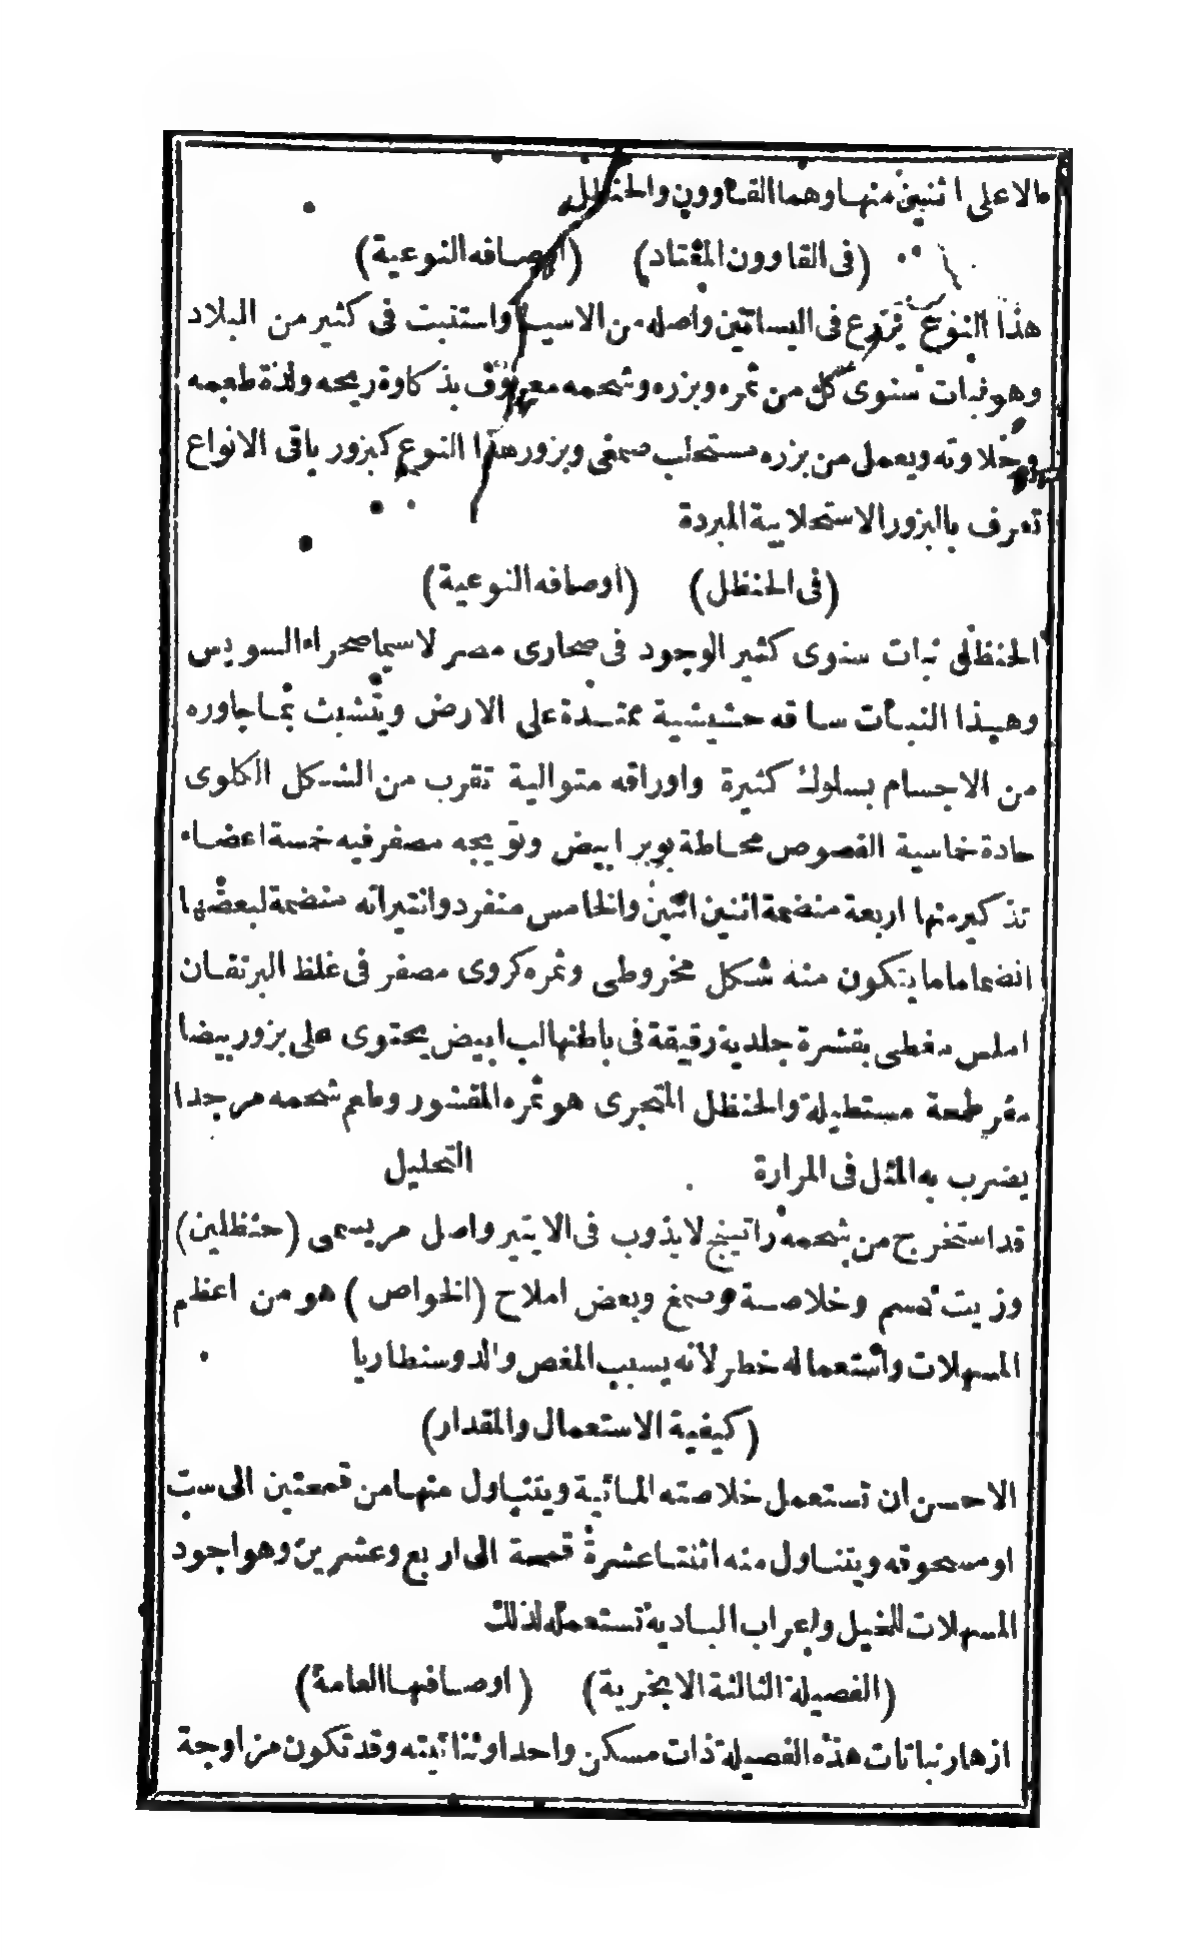 الا على اثنين منها وهما القاوون والحنظل
(فى القاوون المعتاد) (اوصافه النوعية)
هذا النوع يزرع فى البساتين واصله من الاسيا واستنبت فى كثير من البلاد
وهو نبات سنوى كل من ثمره وبزره وشحمه معروف بذكاوة ريحه ولذة طعمه
وحلاوته ويعمل من بزره مستحلب صمغى وبزور هذا النوع كبزور باقى الانواع
تعرف بالبزور الاستحلابية المبردة
(فى الحنظل) (اوصافه النوعية)
الحنظل نبات سنوى كثير الوجود فى صحارى مصر لاسيما صحراء السويس
وهذا النبات ساقه حشيشية ممتدة على الارض ويتشبث بما جاوره
من الاجسام بسلوك كثيرة واوراقه متوالية تقرب من الشكل الكلوى
حادة خماسية الفصوص محاطة بوبر ابيض وتويجه مصفر فيه خمسة اعضاء
تذكير منها اربعة منضمة اثنين اثنين والخامس منفرد وانتيراته منضمة لبعضها
انضماما ما يتكون منه شكل مخروطى وثمره كروى مصفر فى غلظ البرتقان
املس مغطى بقشرة جلدية رقيقة فى باطنها لب ابيض يحتوى على بزور بيضا
مفرطحة مستطيلة والحنظل المتجرى هو ثمره المقشور وطعم شحمه مر جدا
يضرب به المثل فى المرارة التحليل
قد استخرج من شحمه راتينج لا يذوب فى الايتير واصل مر يسمى (حنظلين)
وزيت دسم وخلاصة وصمغ وبعض املاح (الخواص) هو من اعظم
المسهلات واستعماله خطر لانه يسبب المغص والدوسنطاريا
(كيفية الاستعمال والمقدار)
الاحسن ان تستعمل خلاصته المائية ويتناول منها من قمحتين الى ست
او مسحوقه ويتناول منه اثنتا عشرة قمحة الى اربع وعشرين وهو اجود
المسهلات للخيل واعراب البادية تستعمله لذلك
(الفصيلة الثالثة الانجرية) (اوصافها العامة)
ازهار نباتات هذه الفصيلة ذات مسكن واحد او ثنائيته وقد تكون مزاوجة